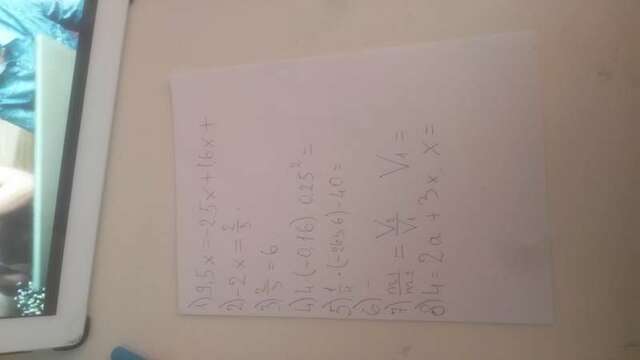 1) 9,5x = -25x + 16x +
2) -2x = 2/5.
3) 2/3 = 6
4) 4(-0,16) 0,25² =
5) · (-26,6) - 40 =
6) -
7) m1/m2 = V2/V1 V1 =
8) 4 = 2a + 3x, x =